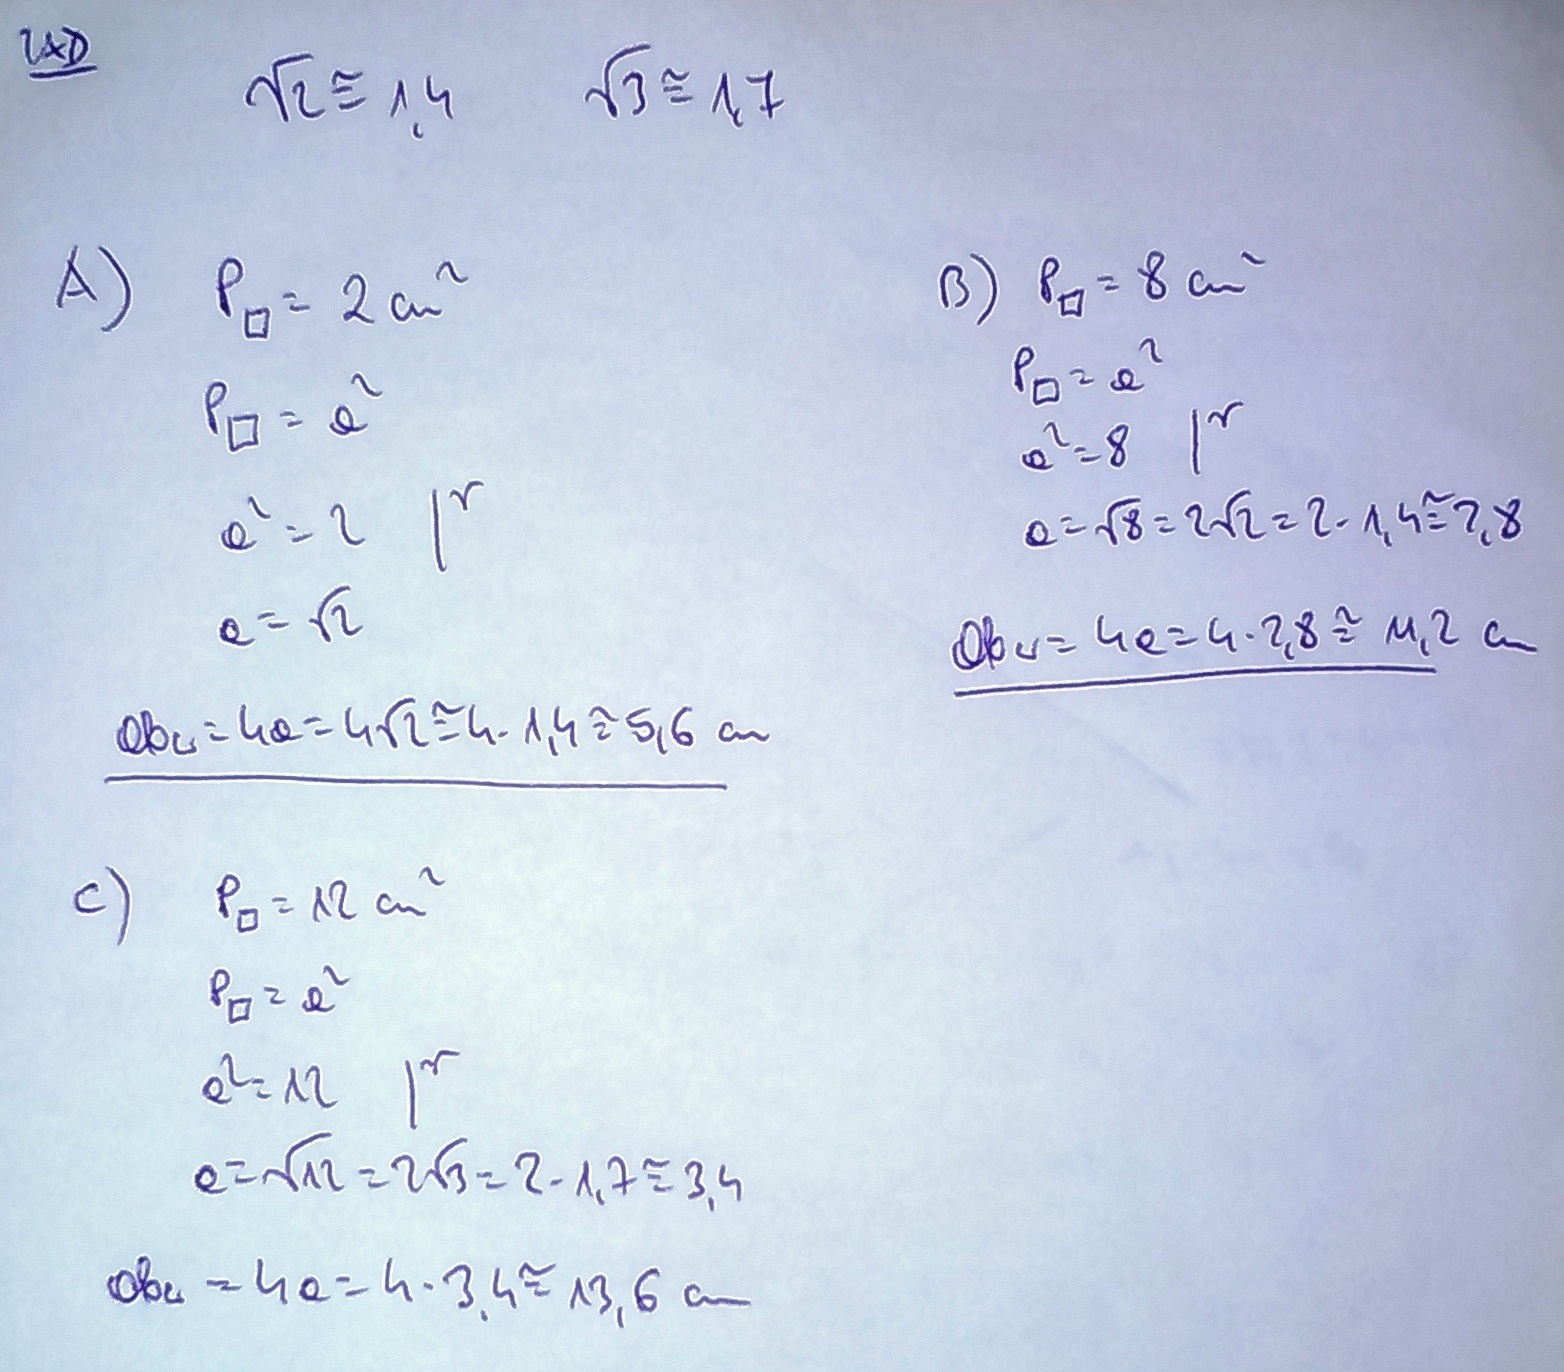 ZAD
√2 ≅ 1,4 √3 ≅ 1,7
A) P□ = 2 cm²
P□ = a²
a² = 2 |√
a = √2
Obw = 4a = 4√2 ≅ 4 · 1,4 ≅ 5,6 cm
B) P□ = 8 cm²
P□ = a²
a² = 8 |√
a = √8 = 2√2 = 2 · 1,4 ≅ 2,8
Obw = 4a = 4 · 2,8 ≅ 11,2 cm
C) P□ = 12 cm²
P□ = a²
a² = 12 |√
a = √12 = 2√3 = 2 · 1,7 ≅ 3,4
Obw = 4a = 4 · 3,4 ≅ 13,6 cm